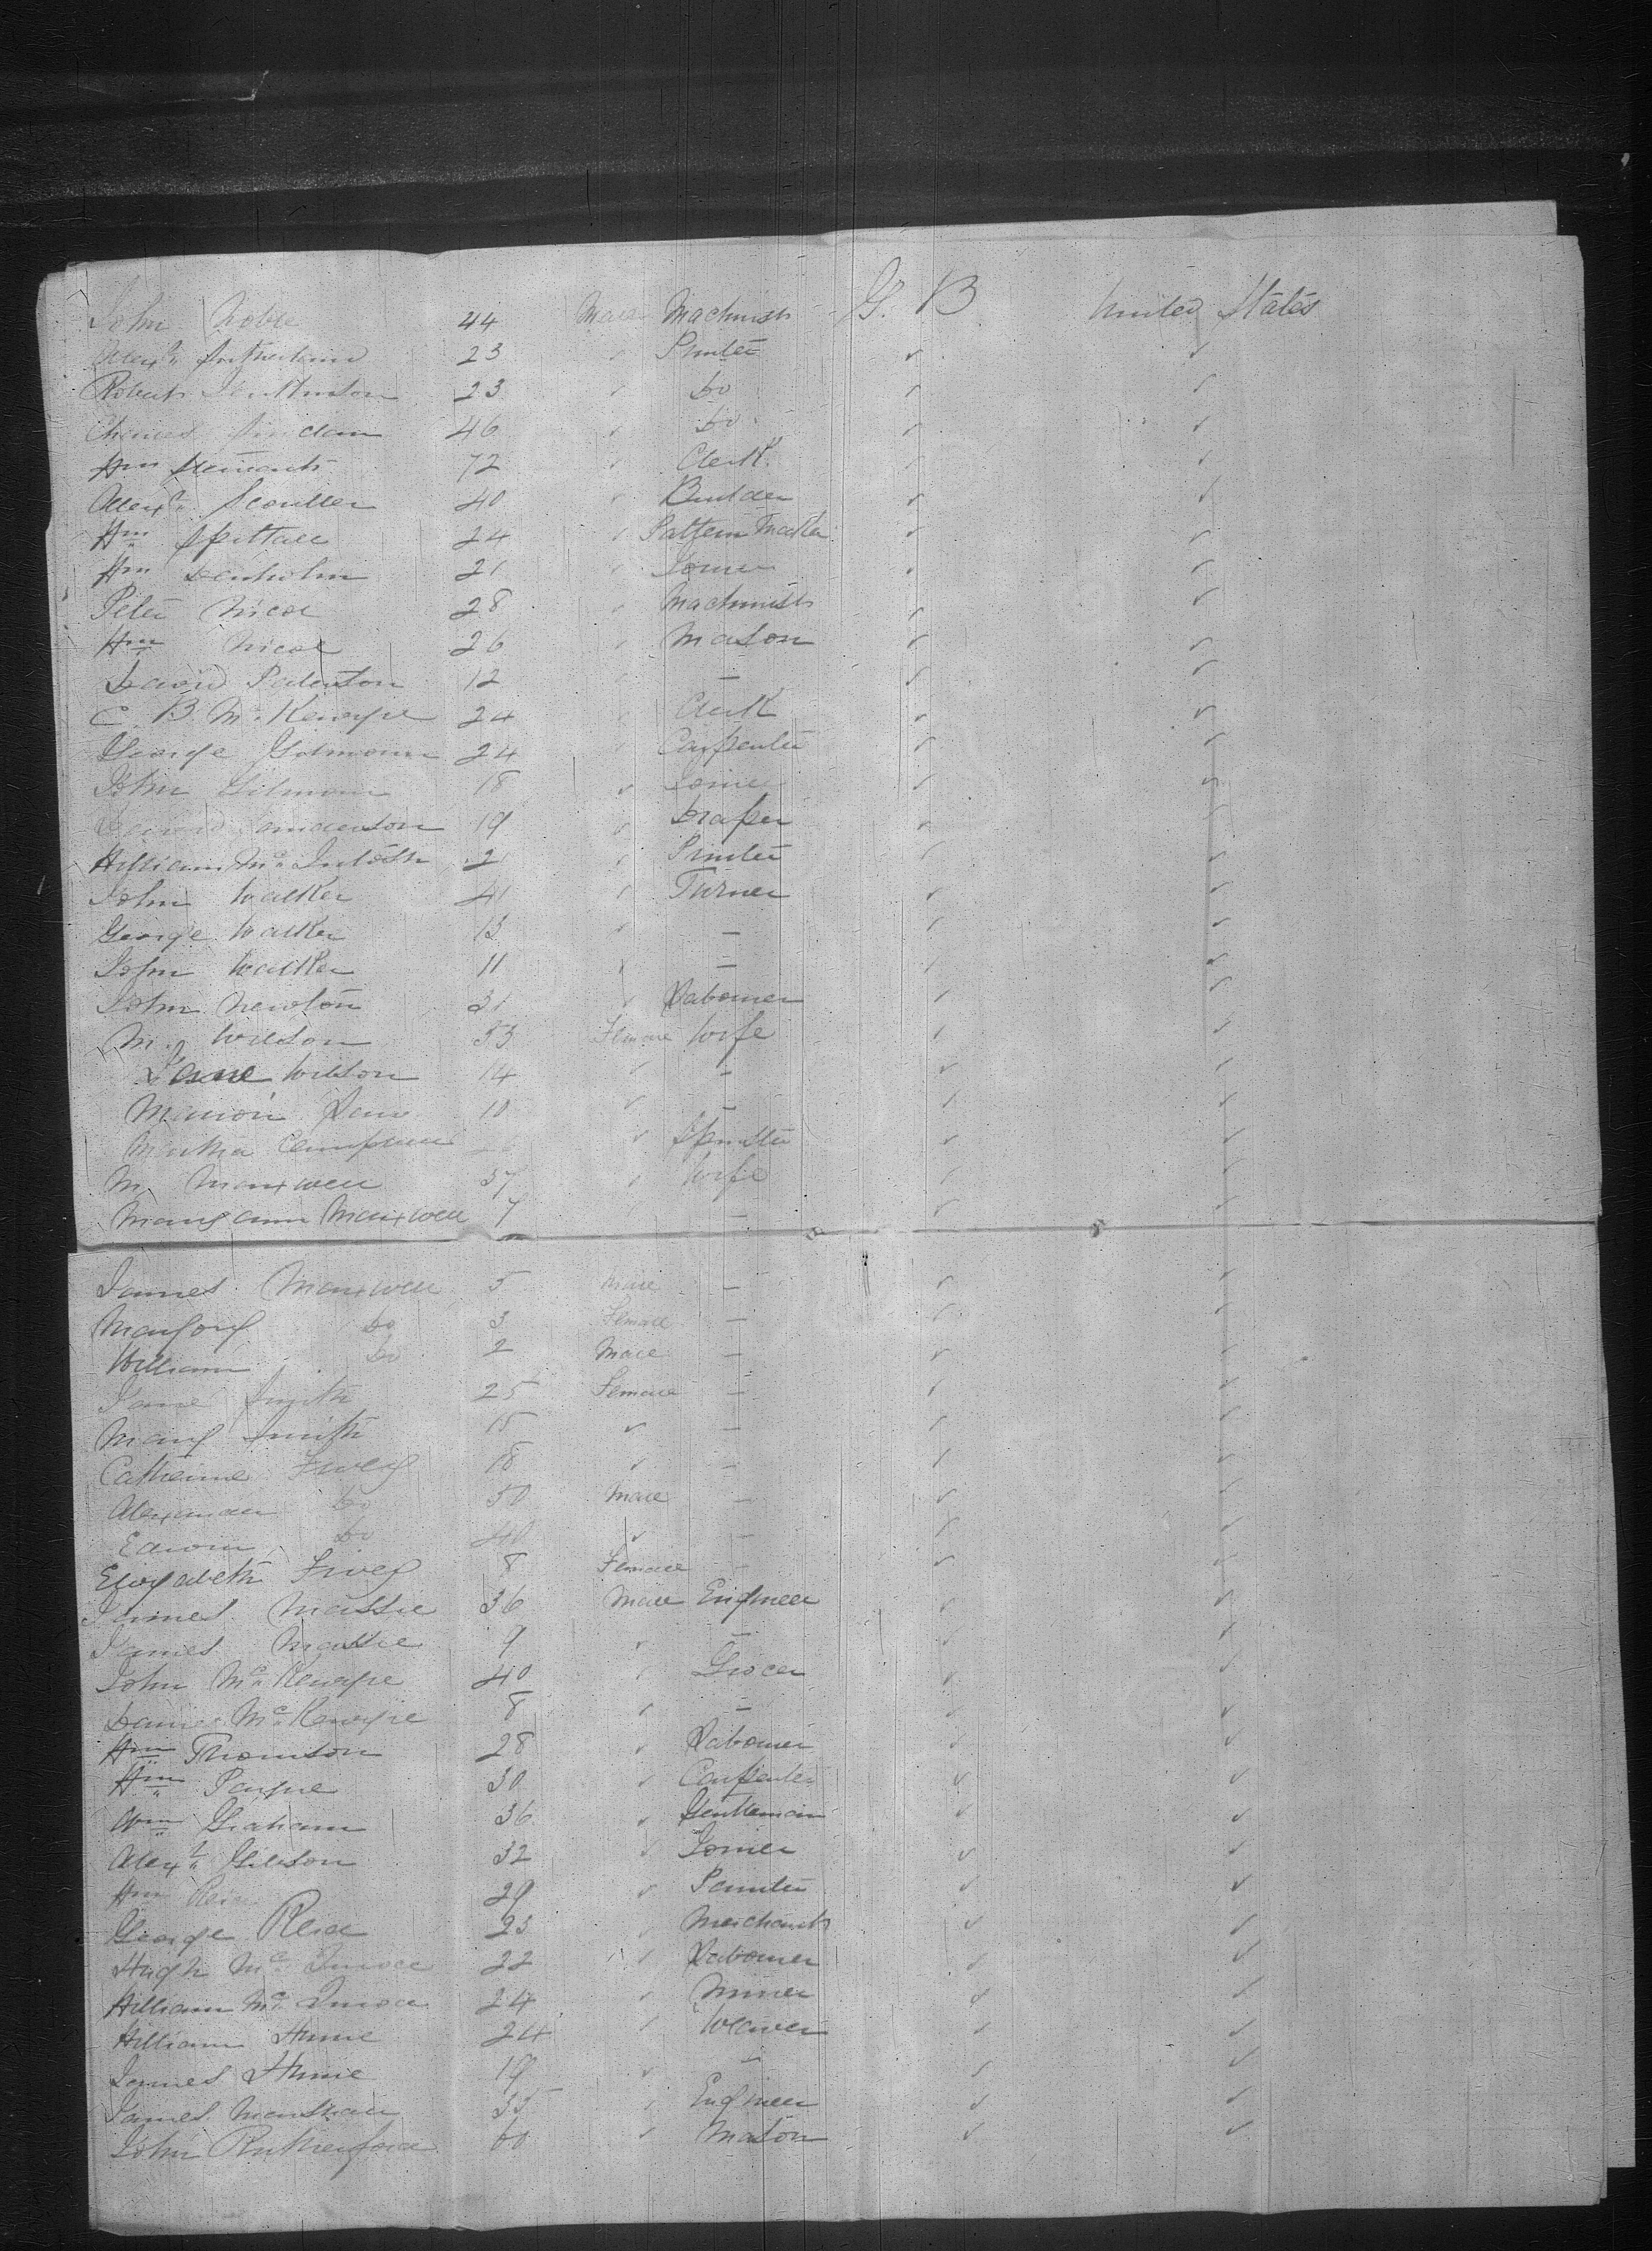 John Noble 44 Male Machinist G. B United States
Alexr Sutherland 23 ✓ Printer ✓ ✓
Robert 23 ✓ Do ✓ ✓
Charles 46 ✓ Do ✓ ✓
Wm 72 ✓ Clerk ✓ ✓
Alexr Scouller 40 ✓ Builder ✓ ✓
Wm Spittall 24 ✓ Pattern Maker ✓ ✓
Wm Denholm 21 ✓ Joiner ✓ ✓
Peter Nicol 28 ✓ Machinist ✓ ✓
Wm Nicol 26 ✓ Mason ✓ ✓
David Paterson 12 ✓ — ✓ ✓
C. B. McKenzie 24 ✓ Clerk ✓ ✓
George Gilmour 24 ✓ Carpenter ✓ ✓
John Gilmour 18 ✓ Joiner ✓ ✓
David Sanderson 19 ✓ Draper ✓ ✓
William McIntosh ✓ Printer ✓ ✓
John Walker 41 ✓ Turner ✓ ✓
George Walker 13 ✓ — ✓ ✓
John Walker 11 ✓ — ✓ ✓
John Newton 31 ✓ Labourer ✓ ✓
M. Wilson 33 Female Wife ✓ ✓
Jane Wilson 14 ✓ — ✓ ✓
Marion 10 ✓ — ✓ ✓
Martha Campbell ✓ Spinster ✓ ✓
M. Maxwell 37 ✓ Wife ✓ ✓
Mary Ann Maxwell 7 ✓ — ✓ ✓
James Maxwell 5 Male — ✓ ✓
Marjory Do 3 Female — ✓ ✓
William Do 2 Male — ✓ ✓
Jane Smith 25 Female — ✓ ✓
Mary Smith 15 ✓ — ✓ ✓
Catherine Fivey 18 ✓ — ✓ ✓
Alexander Do 50 Male — ✓ ✓
Edwin Do 40 ✓ — ✓ ✓
Elizabeth Fivey 8 Female — ✓ ✓
James Massie 36 Male Engineer ✓ ✓
James Massie 9 ✓ — ✓ ✓
John McKenzie 40 ✓ Grocer ✓ ✓
McKenzie 8 ✓ — ✓ ✓
Wm Thomson 28 ✓ Labourer ✓ ✓
Wm Payne 30 ✓ Carpenter ✓ ✓
Wm Graham 36 ✓ Gentleman ✓ ✓
Alexr Gibson 32 ✓ Joiner ✓ ✓
Wm Reid 29 ✓ Painter ✓ ✓
George Reid 23 ✓ Merchant ✓ ✓
Hugh Mc 22 ✓ Labourer ✓ ✓
William Mc 24 ✓ Miner ✓ ✓
William Hume 24 ✓ Weaver ✓ ✓
James Hume 19 ✓ — ✓ ✓
James Marshall 35 ✓ Engineer ✓ ✓
John Rutherford 60 ✓ Mason ✓ ✓